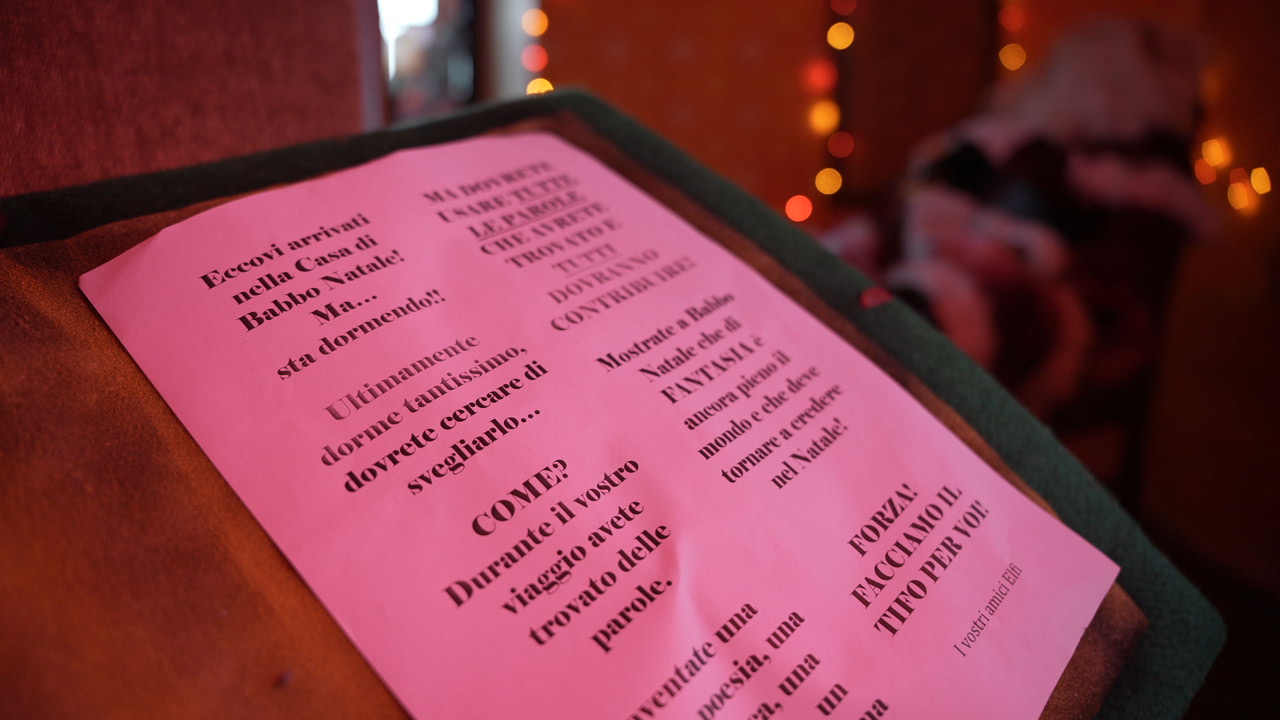 Eccovi arrivati
nella Casa di
Babbo Natale!
Ma...
sta dormendo!!
Ultimamente
dorme tantissimo,
dovrete cercare di
svegliarlo...
COME?
Durante il vostro
viaggio avete
trovato delle
parole.
poesia, una
una
un
MA DOVRETE
USARE TUTTE
LE PAROLE
CHE AVRETE
TROVATO E
TUTTI
DOVRANNO
CONTRIBUIRE!
Mostrate a Babbo
Natale che di
FANTASIA è
ancora pieno il
mondo e che deve
tornare a credere
nel Natale!
FORZA!
FACCIAMO IL
TIFO PER VOI!
I vostri amici Elfi